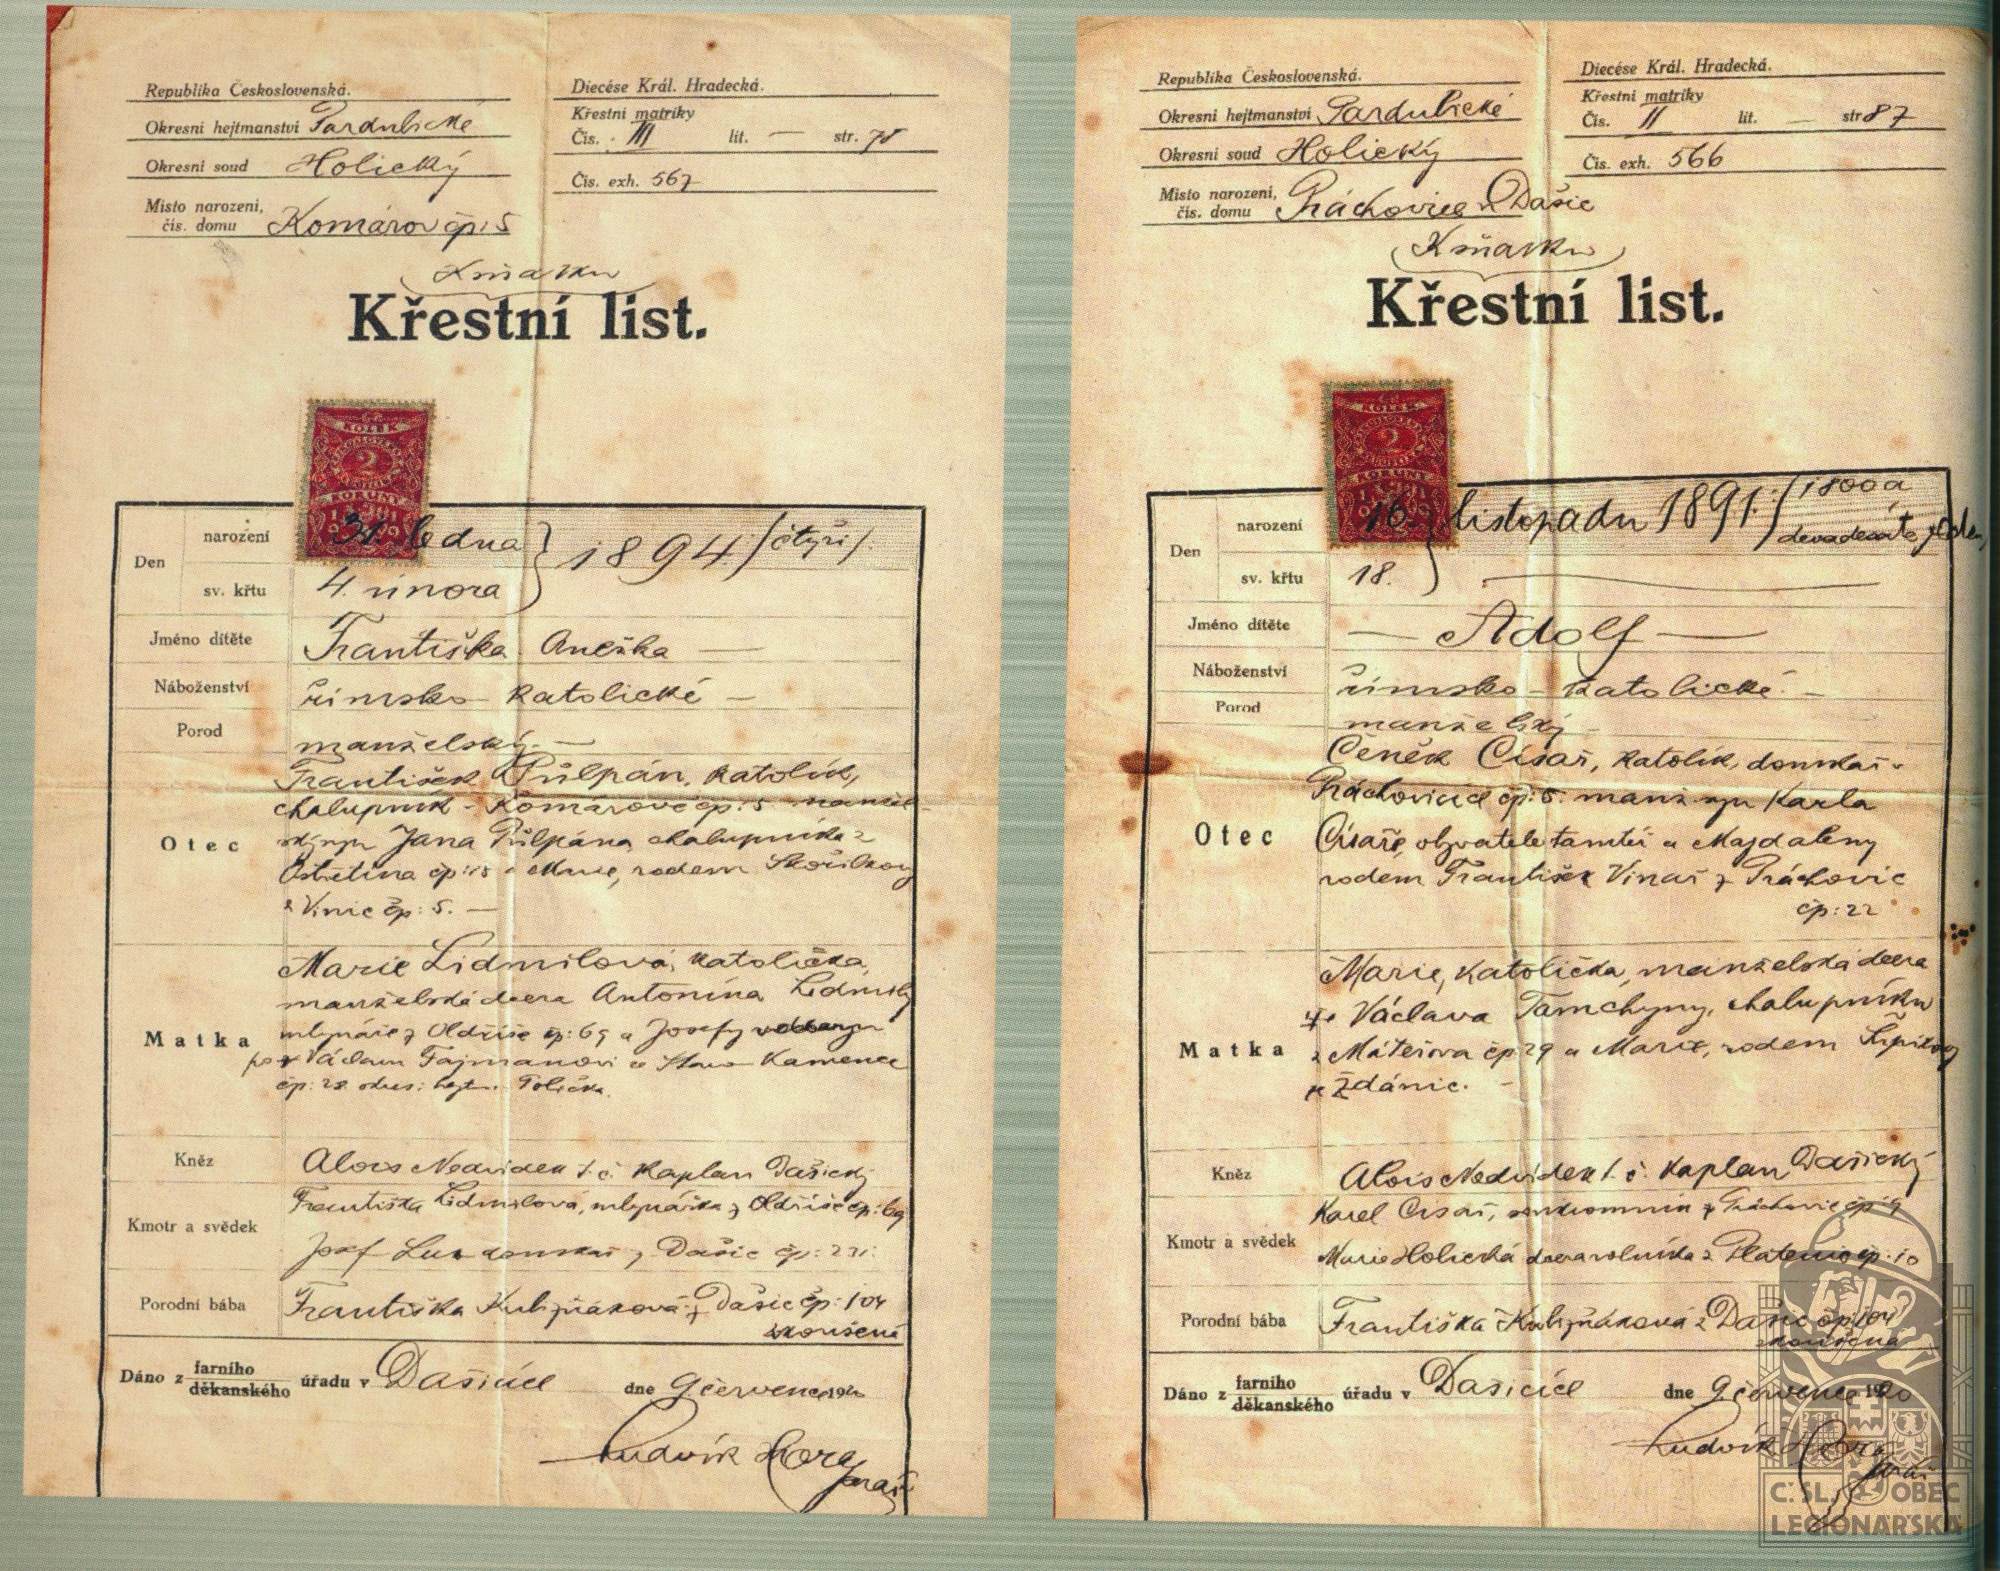 Republika Československá.
Okresní hejtmanství Pardubické
Okresní soud Holický
Místo narození,
čís. domu Komárov čp: 5
Diecése Král. Hradecká.
Křestní matriky
Čís. III lit. — str. 78
Čís. exh. 567
Křestní list.
KOLEK
2
KORUNY
Den
narození 31. ledna
1894. / čtyři /.
sv. křtu 4. února
Jméno dítěte Františka Anežka —
Náboženství římsko-katolické —
Porod manželský. —
Otec
František Půlpán, katolík,
chalupník Komárově čp: 5.
syn Jana Půlpána chalupníka z
Ostřetína čp: 15 a Marie, rodem
z Vinic čp: 5. —
Matka
Marie Lidmilová, katolička,
manželská dcera Antonína Lidmily
mlynáře z Oldříše čp: 69 a Josefy
po Václavu Fajmanovi ze Kamence
čp: 28 okres: hejt. Polička.
Kněz Alois Nedvídek t. č. kaplan Dašický
Kmotr a svědek
Františka Lidmilová, mlynářka z Oldříše čp: 69
Josef z Dašic čp: 221.
Porodní bába Františka Kubizňáková z Dašic čp: 104
zkoušená
Dáno z farního
děkanského úřadu v Dašicích dne 9. července 1920
Ludvík Hora
farář
Republika Československá.
Okresní hejtmanství Pardubické
Okresní soud Holický
Místo narození,
čís. domu Práchovice u Dašic
Diecése Král. Hradecká.
Křestní matriky
Čís. II lit. — str 87
Čís. exh. 566
Křestní list.
KOLEK
2
KORUNY
Den
narození 16. listopadu 1891. / 1800 a
devadesát jeden/
sv. křtu 18.
Jméno dítěte — Adolf —
Náboženství římsko-katolické. —
Porod manželský —
Otec
Čeněk Císař, katolík, domkář v
Práchovicích čp: 5. manž. syn Karla
Císaře, obyvatele tamtéž a Magdaleny
rodem František Vinař z Práchovic
čp: 22
Matka
Marie, katolička, manželská dcera
Václava Tamchyny, chalupníka
z Mateřova čp 29 a Marie, rodem
z Ždánic. —
Kněz Alois Nedvídek t. č. kaplan Dašický
Kmotr a svědek
Karel Císař, soukromník z Práchovic čp: 9
Marie Holická dcera rolníka z Platenic čp: 10
Porodní bába Františka Kubizňáková z Dašic čp: 104
zkoušená
Dáno z farního
děkanského úřadu v Dašicích dne 9. července 1920
Ludvík Hora
farář
Č. SL. OBEC
LEGIONÁŘSKÁ